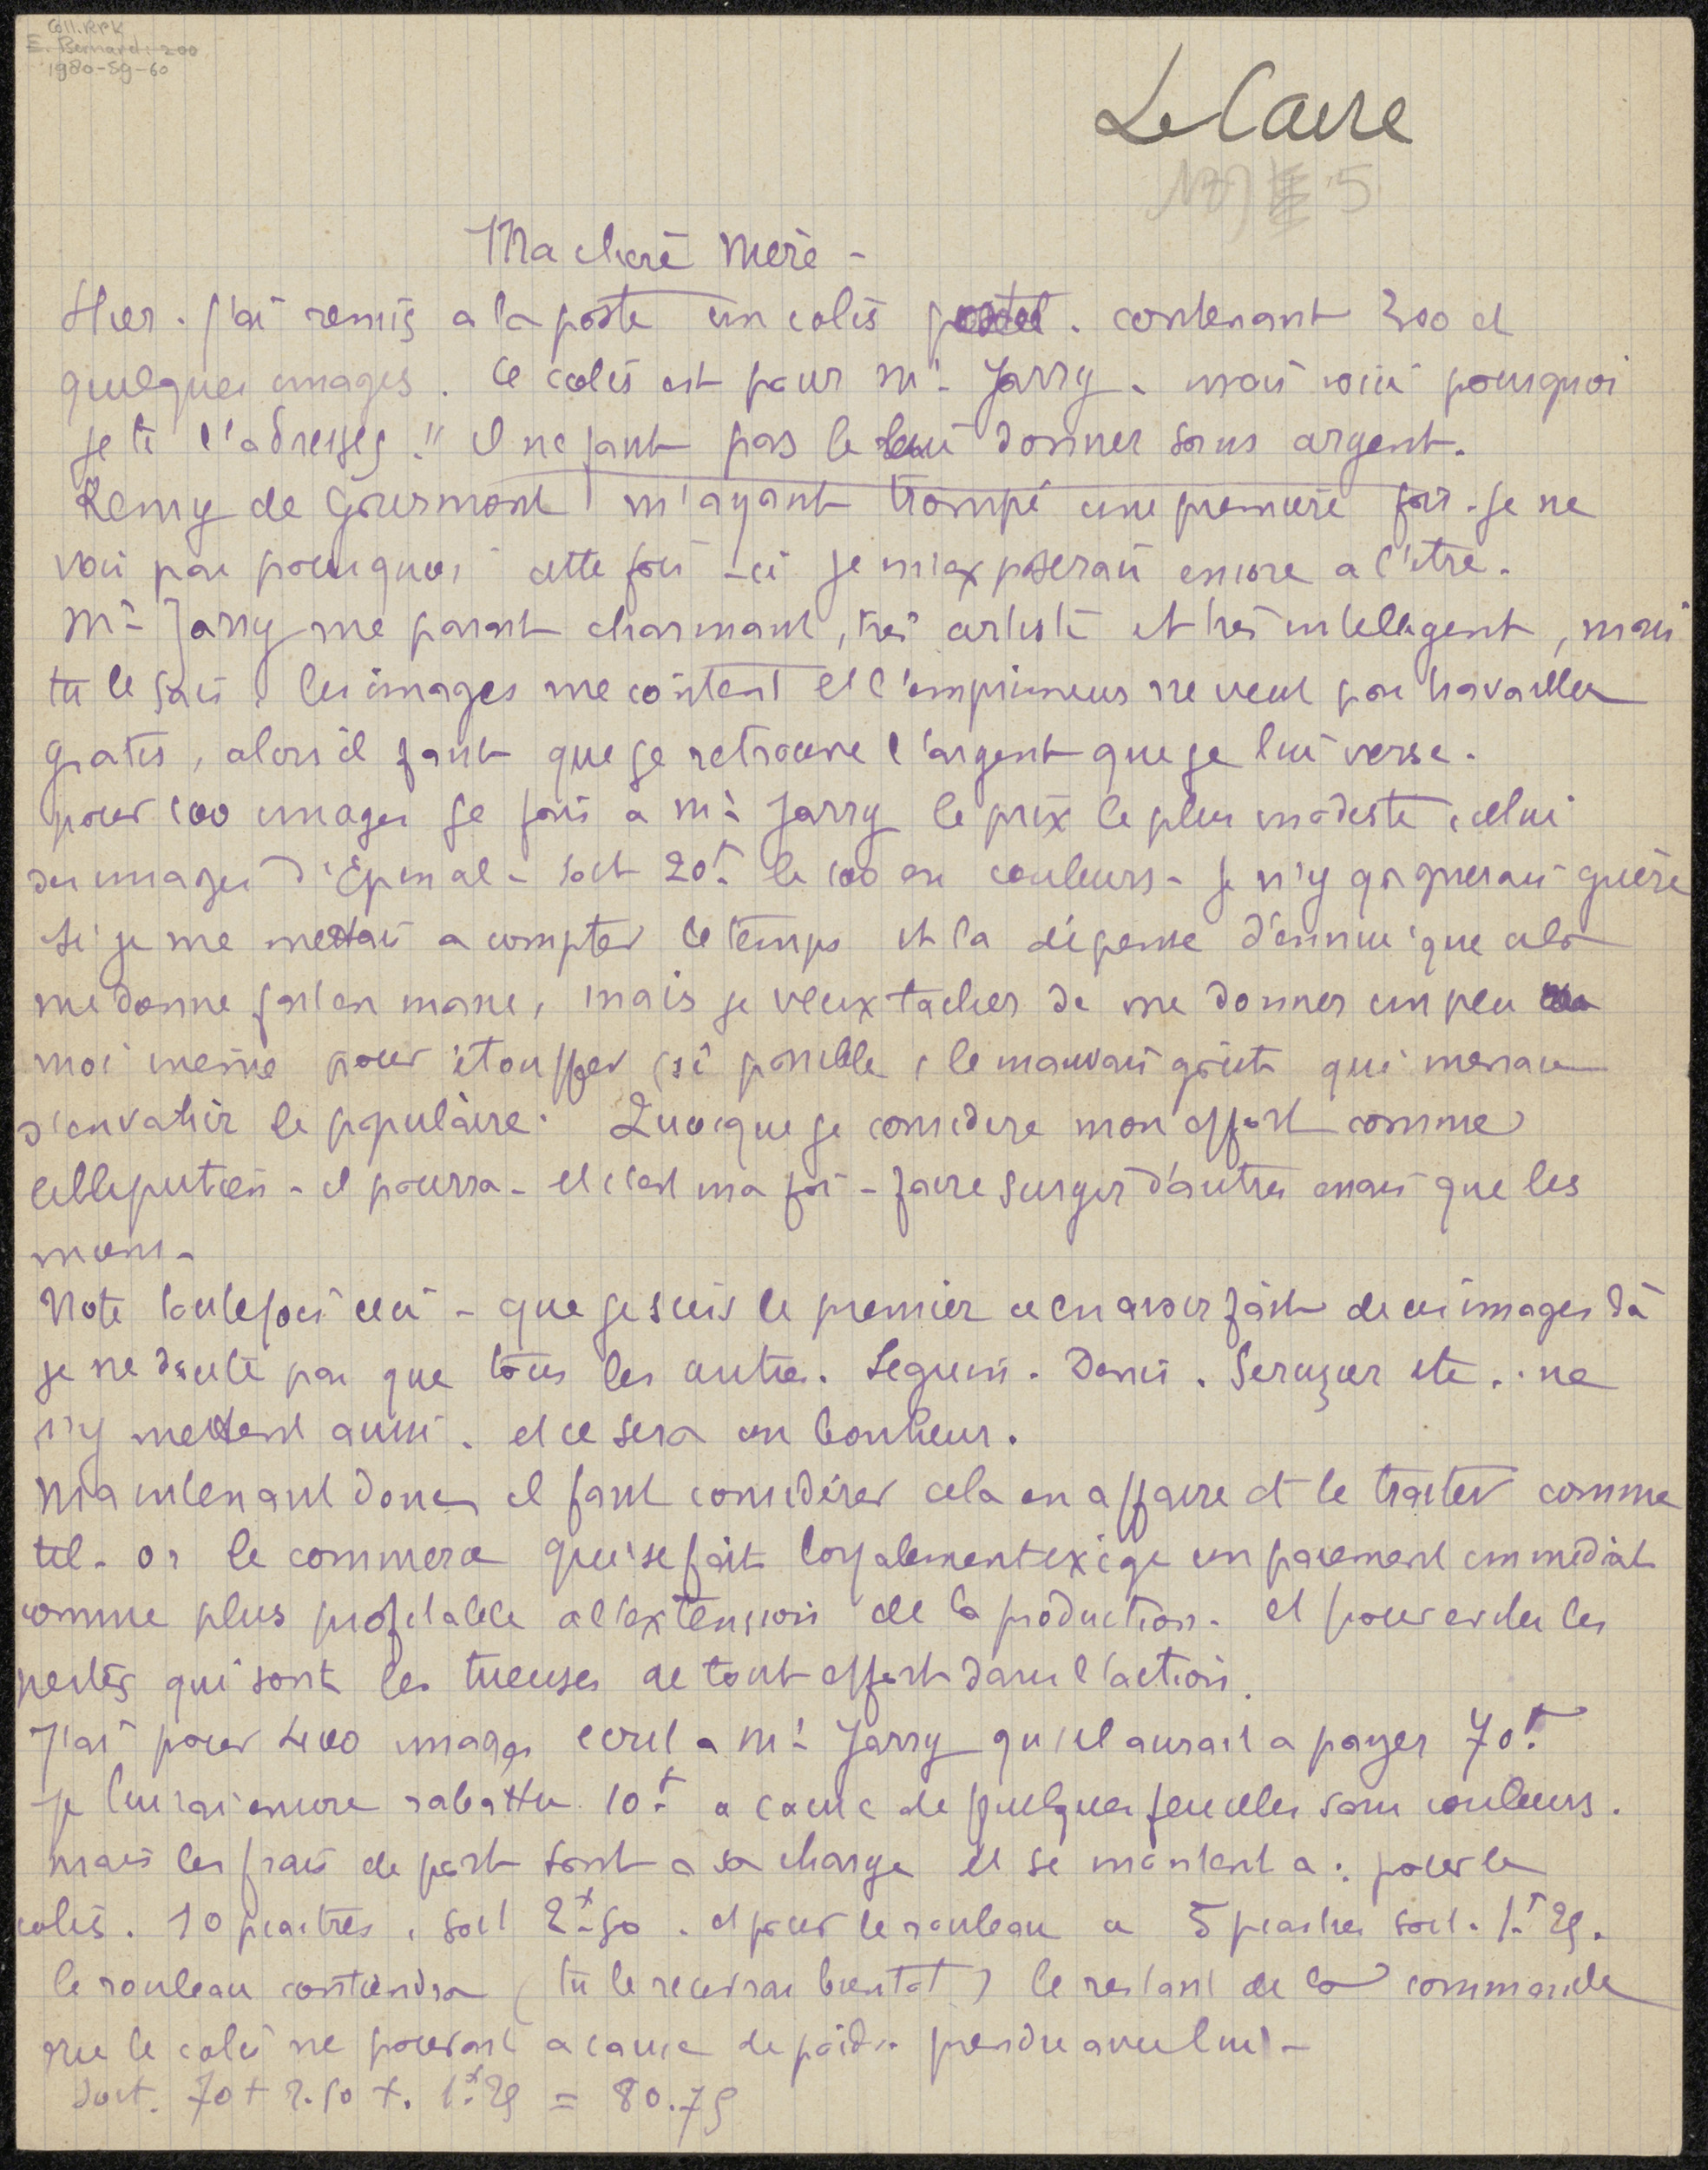 Coll. RPK
E. Bernard: 200
1980-Sg-60
Le Caire
5
Ma chere Mere -
Hier. j'ai remis a la poste un colis postal. contenant 300 et
quelques images. Ce colis est pour Mr. Jarry. mais voici pourquoi
je te l'adresses!! il ne faut pas le lui donner sans argent.
Remy de Gourmont m'ayant trompé une premiere fois. je ne
vois pas pourquoi cette fois-ci je m'exposerais encore a l'etre.
Mr Jarry me parait charmant, tres artiste et tres intelligent, mais
tu le sais, les images me coutent et l'imprimeur ne veut pas travailler
gratis, alors il faut que je retrouve l'argent que je lui verse.
pour 100 images je fais a Mr Jarry le prix le plus modeste, celui
des images d'Epinal - soit 20f le 100 en couleurs - je n'y gagnerais guère
si je me mettais a compter le temps et la dépense d'ennui que cela
me donne, mais je veux tacher de me donner un peu
moi meme pour étouffer, si possible, le mauvais goût qui menace
d'envahir le populaire. Quoique je considere mon effort comme
lilliputien - il pourra - et c'est ma foi - faire surgir d'autres essais que les
miens -
Note toutefois ceci - que je suis le premier a en avoir fait de ces images là
je ne doute pas que tous les autres. Seguin. Denis. Seruzier etc.. ne
s'y mettent aussi. et ce sera un bonheur.
Maintenant donc il faut considérer cela en affaire et le traiter comme
tel. or le commerce qui se fait loyalement exige un paiement immediat
comme plus profitable a l'extension de la production. et pour eviter les
pertes qui sont les tueuses de tout effort dans l'action.
J'ai pour 400 images ecrit a Mr Jarry qu'il aurait a payer 70f.
je lui ai encore rabattu 10f a cause de quelques feuilles sans couleurs.
mais les frais de port sont a sa charge et se montent a: pour le
colis. 10 piastres, soit 2f50. et pour le rouleau a 5 piastres soit. 1f25.
le rouleau contiendra (tu le recevras bientot) le restant de la commande
que le colis ne pouvait a cause de poids prendre avec lui -
Soit. 70 + 2.50 +. 1f25 = 80.75